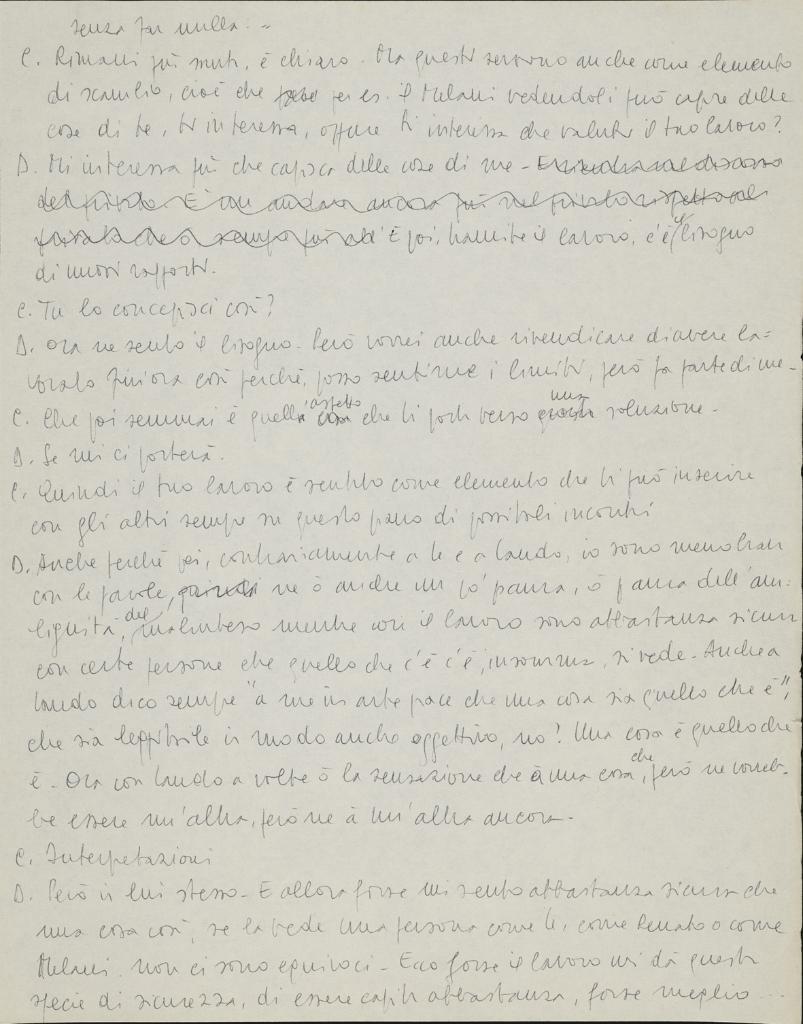 senza far nulla. -
C. Rimani più muta, è chiaro. Ora questi servono anche come elemento
di scambio, cioè che per es. il Melani vedendoli può capire delle
cose di te, ti interessa, oppure ti interessa che valuti il tuo lavoro?
D. Mi interessa più che capisca delle cose di me -
E poi, tramite il lavoro, c'è il bisogno
di nuovi rapporti.
C. Tu lo concepisci così?
D. Ora ne sento il bisogno. Però vorrei anche rivendicare di avere la=
vorato finora così perché, posso sentirne i limiti, però fa parte di me -
C. Che poi semmai è quell'aspetto che ti porta verso una soluzione -
D. Se mi ci porterà.
C. Quindi il tuo lavoro è sentito come elemento che ti può inserire
con gli altri sempre su questo piano di possibili incontri
D. Anche perché poi, contrariamente a te e a Lando, io sono meno brava
con le parole, ne ò anche un po' paura, ò paura dell'am=
biguità, del malinteso mentre con il lavoro sono abbastanza sicura
con certe persone che quello che c'è c'è, insomma, si vede. Anche a
Lando dico sempre "a me in arte piace che una cosa sia quello che è",
che sia leggibile in modo anche oggettivo, no? Una cosa è quello che
è. Ora con Lando a volte ò la sensazione che à una cosa che, però ne vorreb-
be essere un'altra, però ne à un'altra ancora -
C. Interpretazioni
D. Però in lui stesso. E allora forse mi sento abbastanza sicura che
una cosa così, se la vede una persona come te, come Renato o come
Melani non ci sono equivoci - Ecco forse il lavoro mi dà questa
specie di sicurezza, di essere capita abbastanza, forse meglio ...